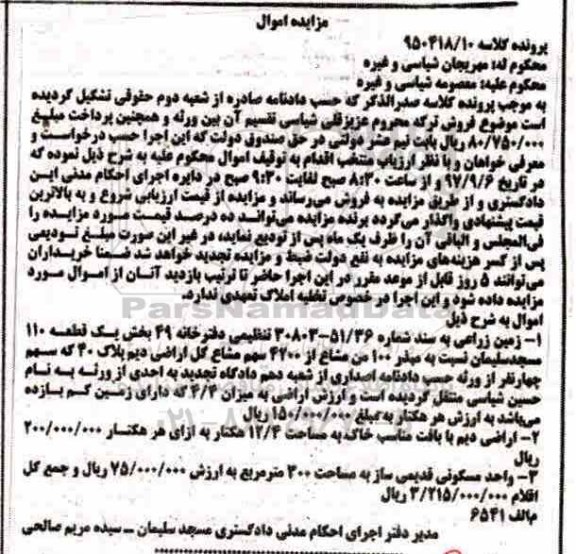 مزایده اموال
پرونده کلاسه ۹۵۰۴۱۸/۱۰
محکوم له: مهریجان شیاسی و غیره
محکوم علیه: معصومه شیاسی و غیره
به موجب پرونده کلاسه صدرالذکر که حسب دادنامه صادره از شعبه دوم حقوقی تشکیل گردیده
است موضوع فروش ترکه محروم عزیزقلی شیاسی تقسیم آن بین ورثه و همچنین پرداخت مبلغ
۸۰/۷۵۰/۰۰۰ ریال بابت نیم عشر دولتی در حق صندوق دولت که این اجرا حسب درخواست و
معرفی خواهان و با نظر ارزیاب منتخب اقدام به توقیف اموال محکوم علیه به شرح ذیل نموده که
در تاریخ ۹۷/۹/۶ و از ساعت ۸:۳۰ صبح لغایت ۹:۳۰ صبح در دایره اجرای احکام مدنی این
دادگستری و از طریق مزایده به فروش می‌رساند و مزایده از قیمت ارزیابی شروع و به بالاترین
قیمت پیشنهادی واگذار می‌گردد برنده مزایده می‌توانند ده درصد قیمت مورد مزایده را
فی‌المجلس و الباقی آن را ظرف یک ماه پس از تودیع نماید، در غیر این صورت مبلغ تودیعی
پس از کسر هزینه‌های مزایده به نفع دولت ضبط و مزایده تجدید خواهد شد ضمنا خریداران
می‌توانند ۵ روز قابل از موعد مقرر در این اجرا حاضر تا ترتیب بازدید آنان از اموال مورد
مزایده داده شود و این اجرا در خصوص تخلیه املاک تعهدی ندارد.
اموال به شرح ذیل
۱- زمین زراعی به سند شماره ۵۱/۳۶-۳۰۸۰۳ تنظیمی دفترخانه ۴۹ بخش یک قطعه ۱۱۰
مسجدسلیمان نسبت به میقدر ۱۰۰ من مشاع از ۴۲۰۰ سهم مشاع کل اراضی دیم پلاک ۴۰ که سهم
چهارنفر از ورثه حسب دادنامه اصداری از شعبه دهم دادگاه تجدید به احدی از ورثه به نام
حسین شیاسی منتقل گردیده است و ارزش اراضی به میزان ۴/۴ که دارای زمین کم بازده
می‌باشد به ارزش هر هکتار به مبلغ ۱۵۰/۰۰۰/۰۰۰ ریال
۲- اراضی دیم با بافت مناسب خاک به مساحت ۱۲/۴ هکتار به ازای هر هکتار ۲۰۰/۰۰۰/۰۰۰
ریال
۳- واحد مسکونی قدیمی ساز به مساحت ۳۰۰ مترمربع به ارزش ۷۵/۰۰۰/۰۰۰ ریال و جمع کل
اقلام ۳/۲۱۵/۰۰۰/۰۰۰ ریال
م‌الف ۶۵۴۱
مدیر دفتر اجرای احکام مدنی دادگستری مسجد سلیمان ــ سیده مریم صالحی
ParsNamadData